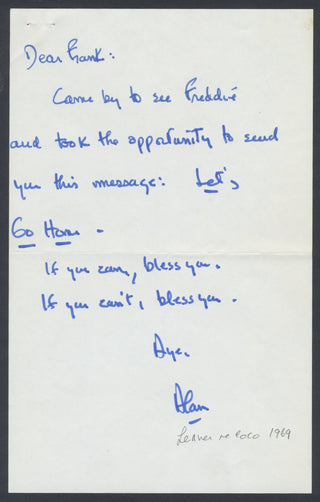 Dear Frank:
Came by to see Freddie
and took the opportunity to send
you this message: Let's
Go Home -
If you can, bless you.
If you can't, bless you.
Aye,
Alan
Lerner re Coco 1969